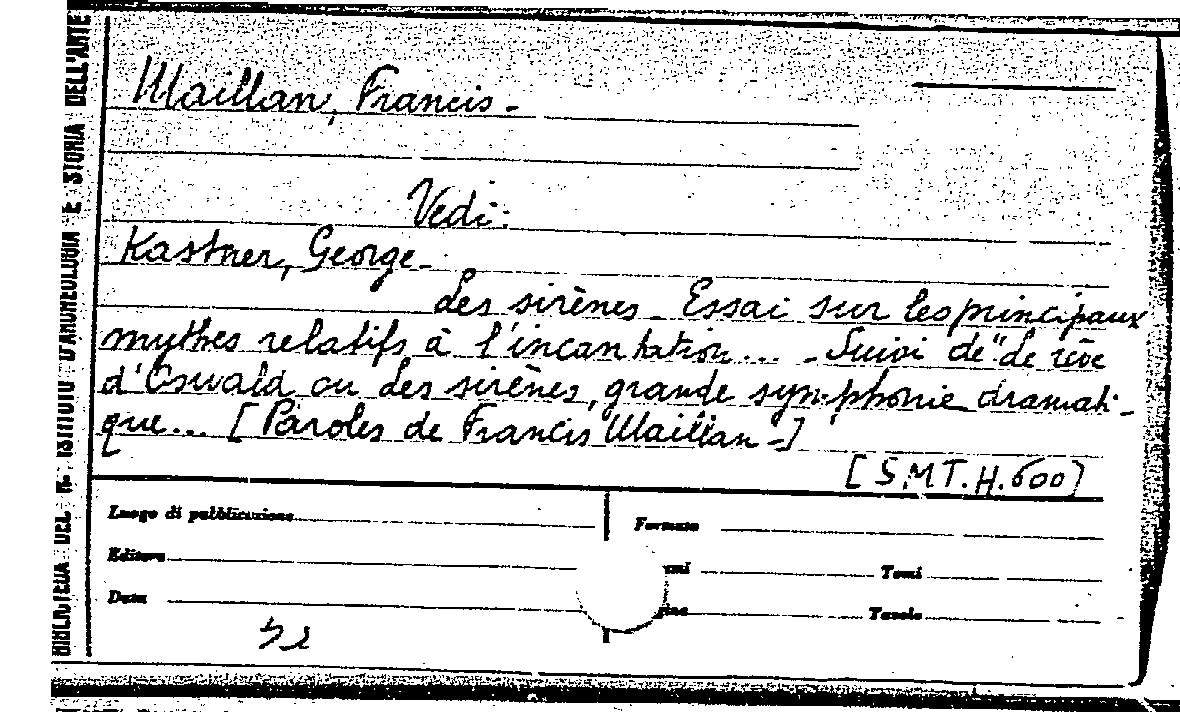 BIBLIOTECA DEL R. ISTITUTO D'ARCHEOLOGIA E STORIA DELL'ARTE
Maillan, Francis.-
Vedi:
Kastner, George.-
Les sirènes. Essai sur les principaux
mythes relatifs à l'incantation... - Suivi de "Le rève
d'Oswald ou des sirènes, grande symphonie dramati-
que... [Paroles de Francis Maillan -]
[S.M.T.H.600]
Luogo di pubblicazione
Formato
Editore
Tomi
Data
Tavole